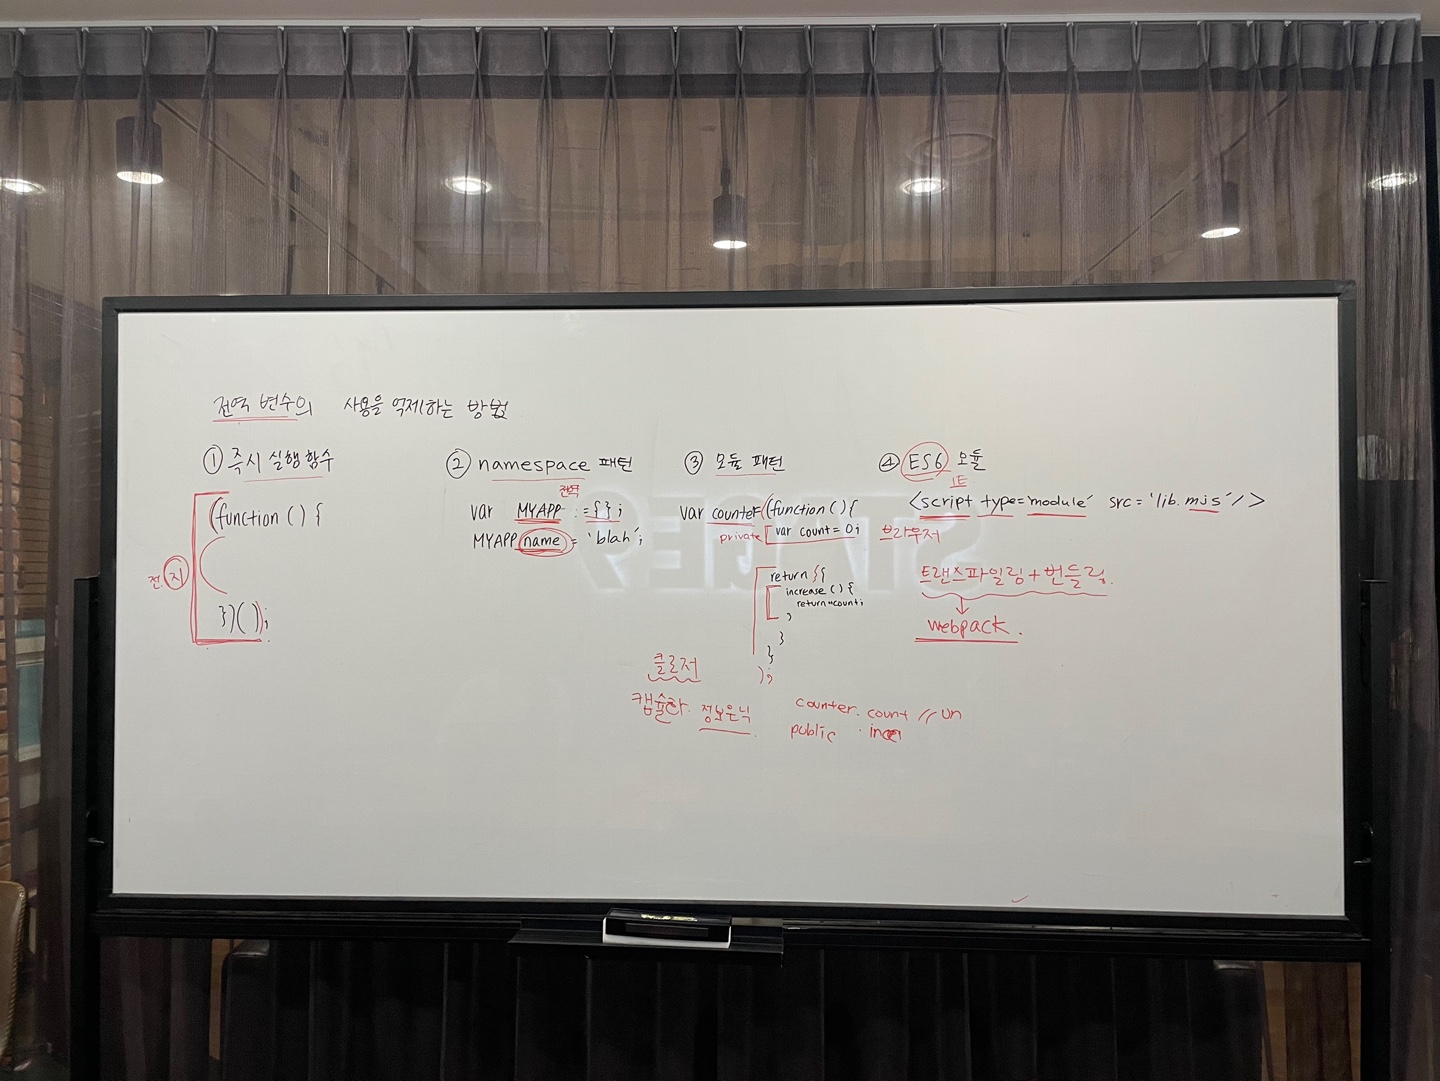 전역 변수의 사용을 억제하는 방법
① 즉시 실행 함수
(function () {
})();
전. 지
② namespace 패턴
전역
var MYAPP = {};
MYAPP.name = 'blah';
③ 모듈 패턴
var counter = (function () {
private var count = 0;
return {
increase () {
return ++count;
}
}
);
클로저
캡슐화. 정보은닉
counter. count // un
public
④ ES6 모듈
IE
<script type='module' src='lib.mjs'/>
브라우저
트랜스파일링 + 번들링.
webpack.